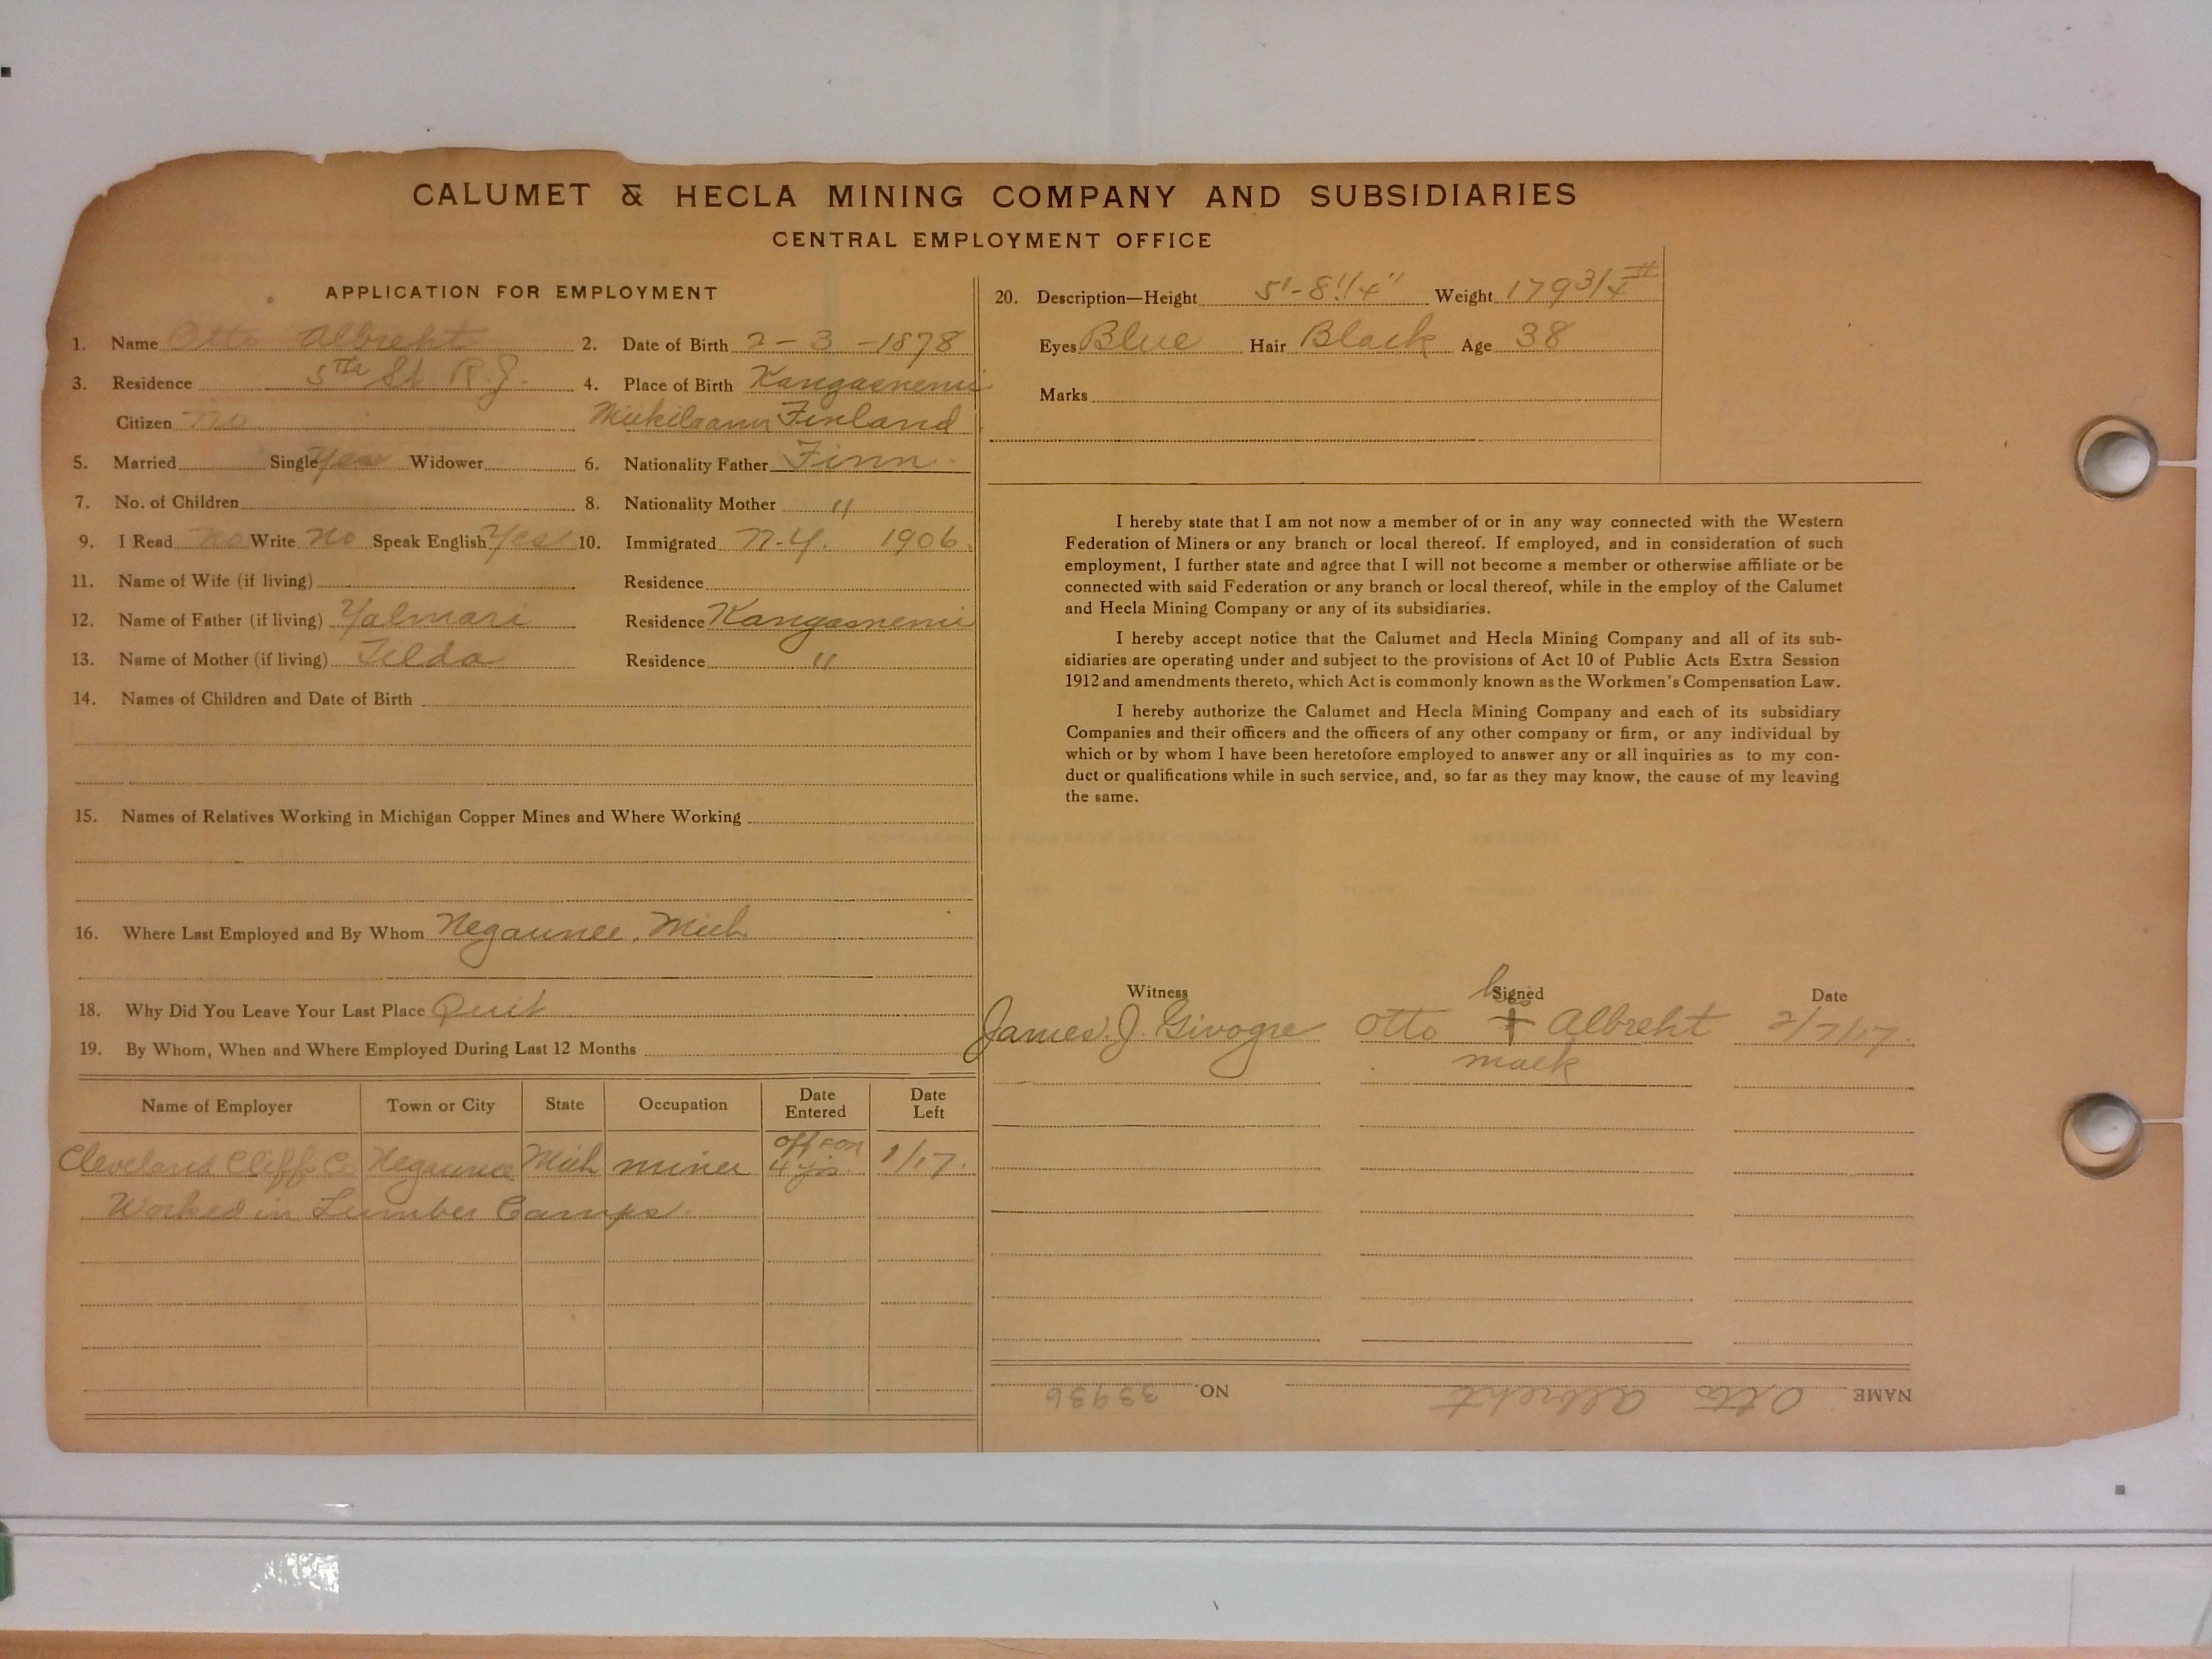 CALUMET & HECLA MINING COMPANY AND SUBSIDIARIES
CENTRAL EMPLOYMENT OFFICE
APPLICATION FOR EMPLOYMENT
1. Name Otto Albreht 2. Date of Birth 2-3-1878
3. Residence 5th St. R.J. 4. Place of Birth Kangasnemi
Citizen no Mikilaanin Finland
5. Married Single Yes Widower 6. Nationality Father Finn
7. No. of Children 8. Nationality Mother "
9. I Read No Write No Speak English Yes 10. Immigrated N.Y. 1906.
11. Name of Wife (if living) Residence
12. Name of Father (if living) Yalmari Residence Kangasnemi
13. Name of Mother (if living) Tilda Residence "
14. Names of Children and Date of Birth
15. Names of Relatives Working in Michigan Copper Mines and Where Working
16. Where Last Employed and By Whom Negaunee, Mich
18. Why Did You Leave Your Last Place Quit
19. By Whom, When and Where Employed During Last 12 Months
Name of Employer Town or City State Occupation Date Entered Date Left
Cleveland Cliff Co Negaunee Mich miner off + on 4 yrs. 1/17.
Worked in Lumber Camps.
20. Description—Height 5'-8 1/4" Weight 179 3/4 #
Eyes Blue Hair Black Age 38
Marks
I hereby state that I am not now a member of or in any way connected with the Western
Federation of Miners or any branch or local thereof. If employed, and in consideration of such
employment, I further state and agree that I will not become a member or otherwise affiliate or be
connected with said Federation or any branch or local thereof, while in the employ of the Calumet
and Hecla Mining Company or any of its subsidiaries.
I hereby accept notice that the Calumet and Hecla Mining Company and all of its sub-
sidiaries are operating under and subject to the provisions of Act 10 of Public Acts Extra Session
1912 and amendments thereto, which Act is commonly known as the Workmen's Compensation Law.
I hereby authorize the Calumet and Hecla Mining Company and each of its subsidiary
Companies and their officers and the officers of any other company or firm, or any individual by
which or by whom I have been heretofore employed to answer any or all inquiries as to my con-
duct or qualifications while in such service, and, so far as they may know, the cause of my leaving
the same.
Witness Signed Date
his
James J. Givogre Otto + Albreht 2/7/17.
mark
NAME Otto Albreht NO. 33936